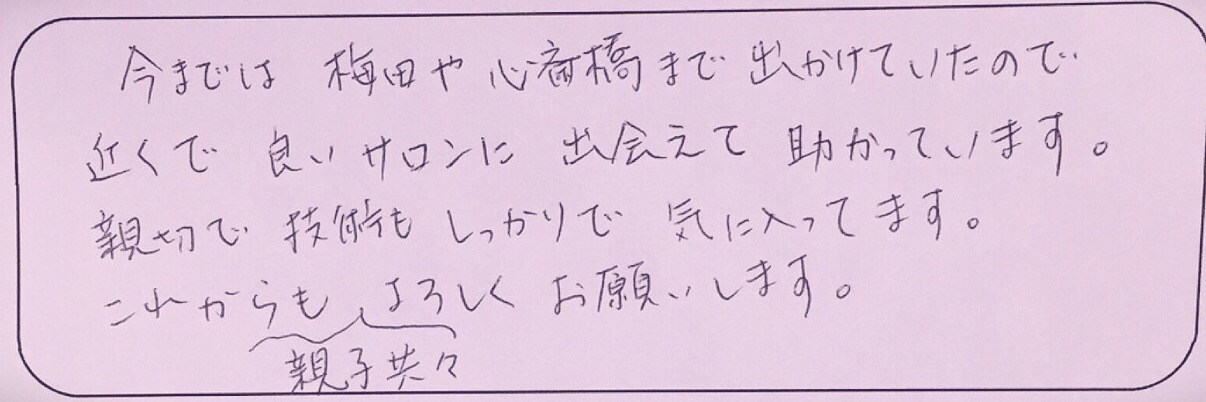 今までは 梅田や心斎橋まで出かけていたので
近くで良いサロンに出会えて助かっています。
親切で技術もしっかりで気に入ってます。
これからもよろしくお願いします。
親子共々